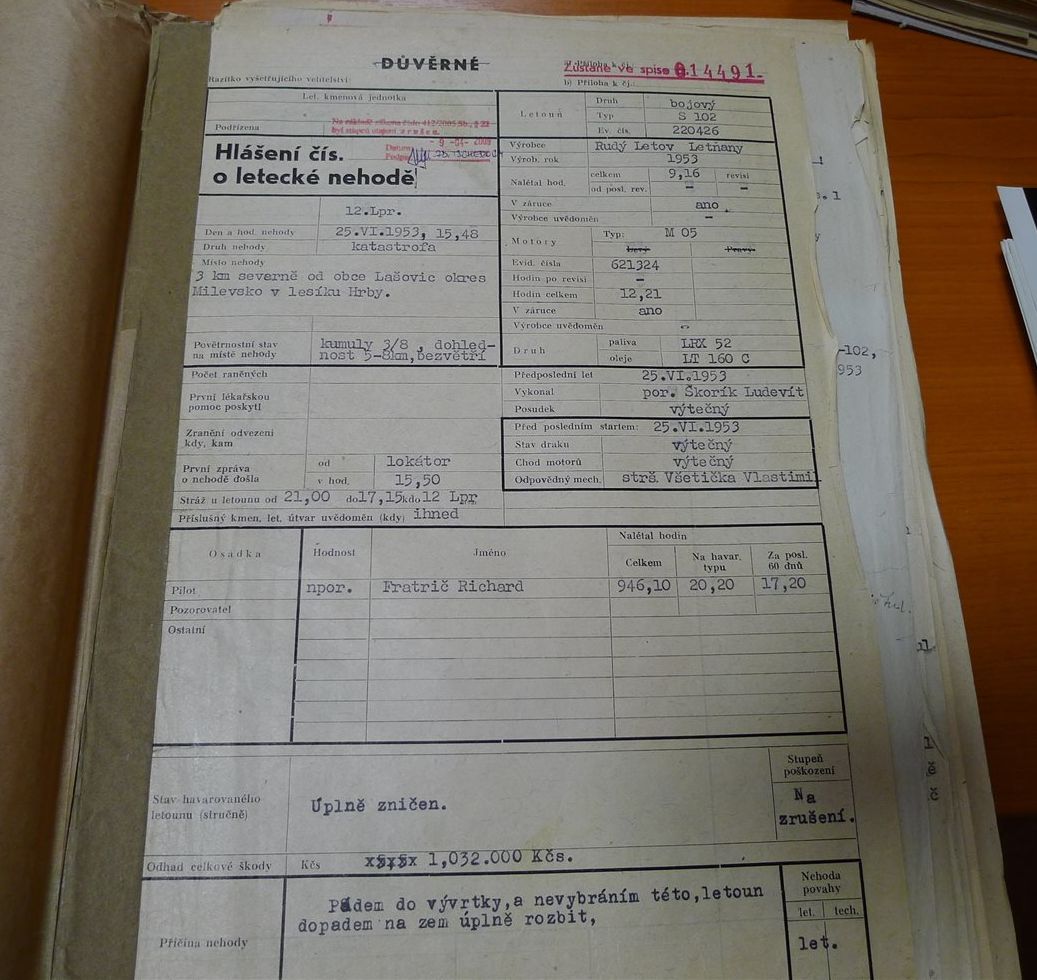 DŮVĚRNÉ
Razítko vyšetřujícího velitelství:
Zůstane ve spise 014491.
a) Příloha k čj.
b) Příloha k čj.:
Let. kmenová jednotka
Na základě zákona číslo 412/2005 Sb., § 22
byl stupeň utajení zrušen.
Podřízena
Datum - 9 -04- 2008
Hlášení čís.
o letecké nehodě
12.Lpr.
Den a hod. nehody 25.VI.1953, 15,48
Druh nehody katastrofa
Místo nehody
3 km severně od obce Lašovic okres
Milevsko v lesíku Hrby.
Povětrnostní stav
na místě nehody
kumuly 3/8 , dohled-
nost 5-8km,bezvětří
Letoun
Druh bojový
Typ S 102
Ev. čís. 220426
Výrobce Rudý Letov Letňany
Výrob. rok 1953
Nalétal hod. celkem 9,16 revisí
od posl. rev. — —
V záruce ano .
Výrobce uvědoměn —
Motory
Typ: M 05
Levý Pravý
Evid. čísla 621324
Hodin po revisi —
Hodin celkem 12,21
V záruce ano
Výrobce uvědoměn
Druh
paliva LRX 52
oleje LT 160 C
Počet raněných
První lékařskou
pomoc poskytl
Zranění odvezeni
kdy, kam
První zpráva
o nehodě došla
od lokátor
v hod. 15,50
Stráž u letounu od 21,00 do17,15kdo12 Lpr
Příslušný kmen, let. útvar uvědoměn (kdy) ihned
Předposlední let 25.VI.1953
Vykonal por. Škorík Ludevít
Posudek výtečný
Před posledním startem: 25.VI.1953
Stav draku výtečný
Chod motorů výtečný
Odpovědný mech. strš. Všetička Vlastimil
Osádka Hodnost Jméno Nalétal hodin
Celkem Na havar. typu Za posl. 60 dnů
Pilot npor. Fratrič Richard 946,10 20,20 17,20
Pozorovatel
Ostatní
Stav havarovaného
letounu (stručně)
Úplně zničen.
Stupeň
poškození
Na
zrušení.
Odhad celkové škody Kčs 1,032.000 Kčs.
Příčina nehody
Pádem do vývrtky,a nevybráním této,letoun
dopadem na zem úplně rozbit,
Nehoda
povahy
let. tech.
let.
-102,
953